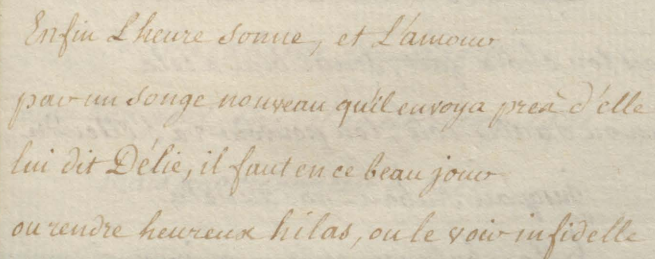 Enfin L'heure sonne, et L'amour
par un songe nouveau qu'il envoya près d'elle
lui dit Délie, il faut en ce beau jour
ou rendre heureux hilas, ou le voir infidelle